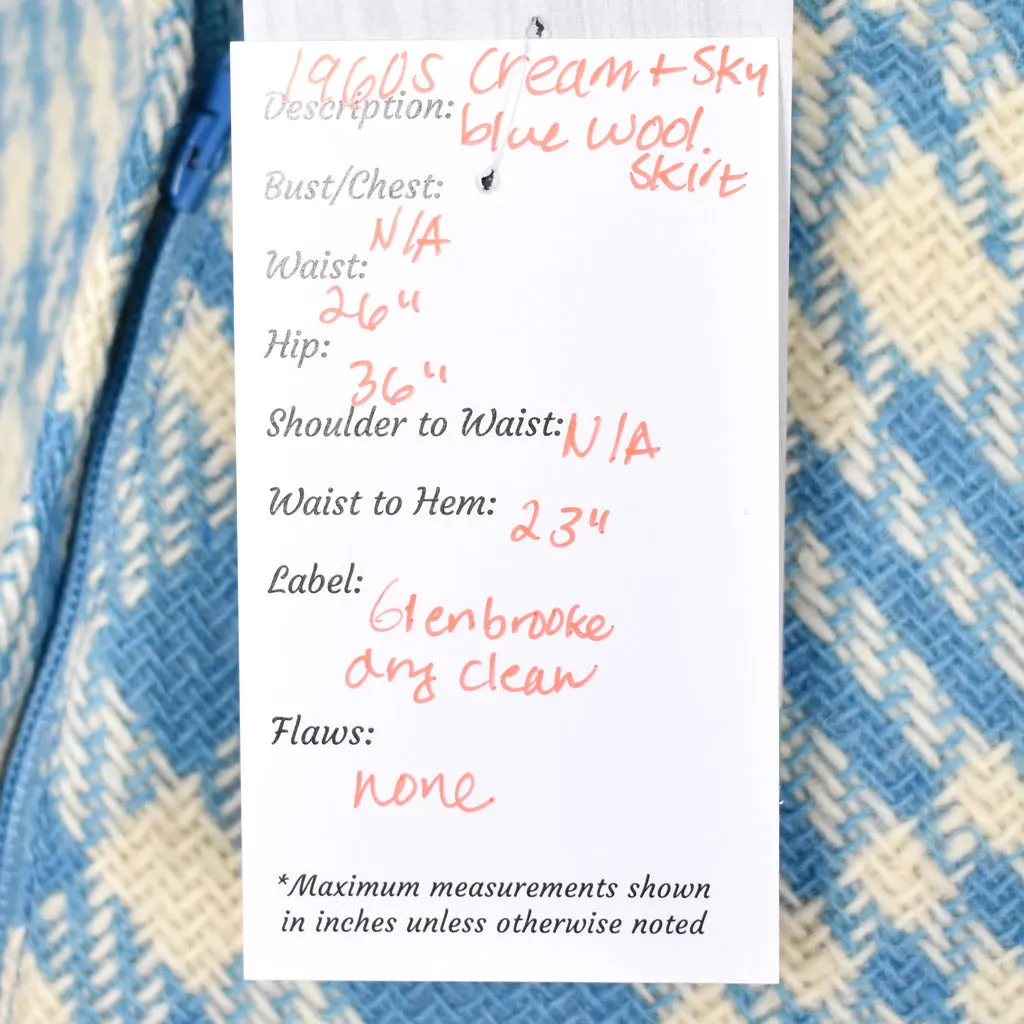 1960s Cream + Sky
Description: blue wool.
skirt
Bust/Chest:
N/A
Waist:
26"
Hip:
36"
Shoulder to Waist: N/A
Waist to Hem: 23"
Label:
Glenbrooke
dry clean
Flaws:
none
*Maximum measurements shown
in inches unless otherwise noted